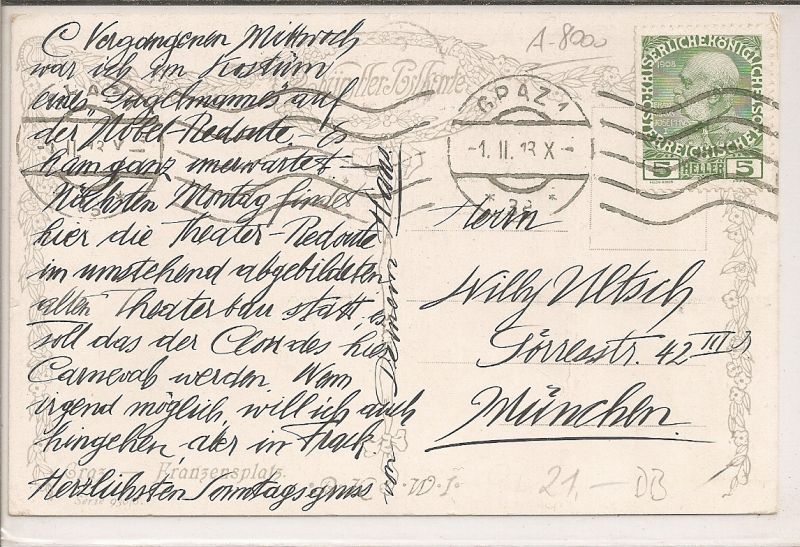 Vergangenen Mittwoch
war ich im Kostüm
eines "Dagelmannes" auf
der "Nobel-Redoute". Es
kam ganz unerwartet. -
Nächsten Montag findet
hier die Theater-Redoute
im umstehend abgebildeten
alten Theaterbau statt, es
soll das der Clou des hies.
Carneval werden. Wenn
irgend möglich, will ich auch
hingehen, aber in Frack.
Herzlichsten Sonntagsgruss
von Deinem Hans
Graz Franzensplatz.
Serie
A-8000
GRAZ 1
-1. II. 13 X-
* 3a *
1908
5 HELLER 5
Herrn
Willy Ultsch
Görresstr. 42 III
München.
21.- DB